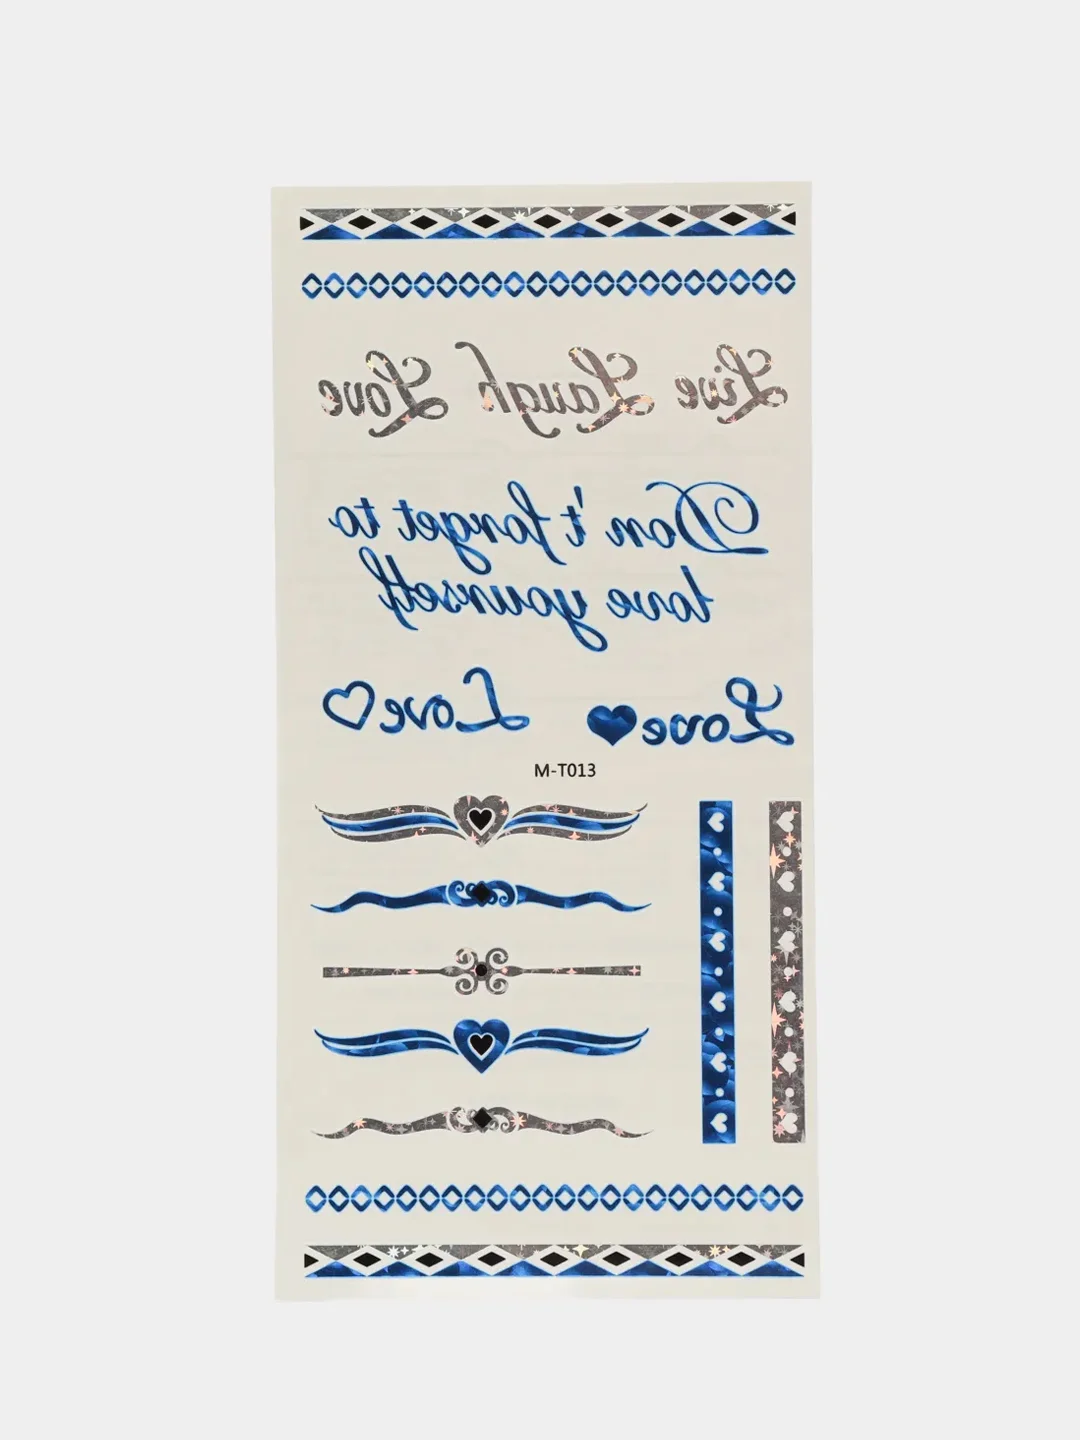 Live Laugh Love
Don't forget to
love yourself
Love Love
M-T013